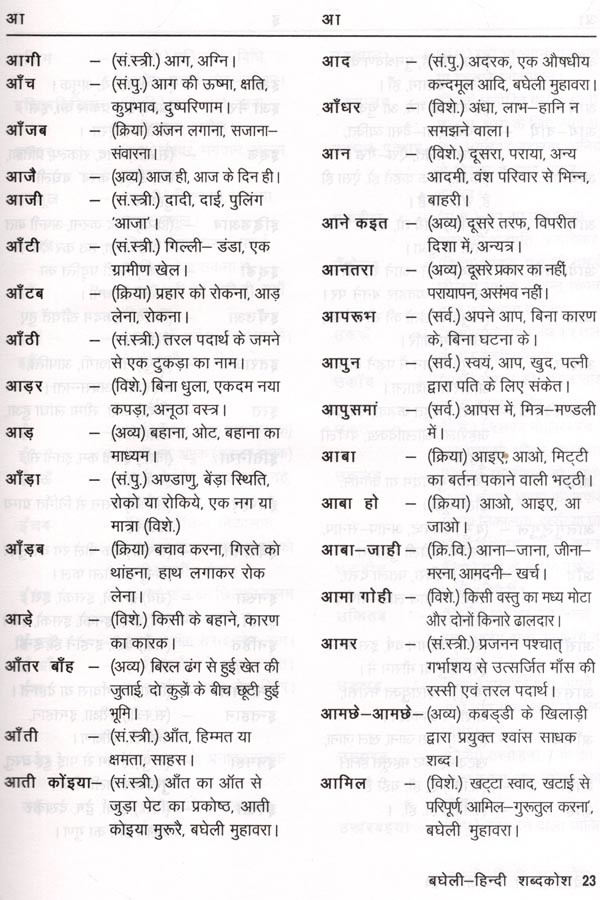 आ
आ
आगी – (सं.स्त्री.) आग, अग्नि।
आँच – (सं.पु.) आग की ऊष्मा, क्षति,
कुप्रभाव, दुष्परिणाम।
आँजब – (क्रिया) अंजन लगाना, सजाना–
संवारना।
आजै – (अव्य) आज ही, आज के दिन ही।
आजी – (सं.स्त्री.) दादी, दाई, पुलिंग
'आजा'।
आँटी – (सं.स्त्री.) गिल्ली– डंडा, एक
ग्रामीण खेल।
आँटब – (क्रिया) प्रहार को रोकना, आड़
लेना, रोकना।
आँठी – (सं.स्त्री.) तरल पदार्थ के जमने
से एक टुकड़ा का नाम।
आड़र – (विशे.) बिना धुला, एकदम नया
कपड़ा, अनूठा वस्त्र।
आड़ – (अव्य) बहाना, ओट, बहाना का
माध्यम।
आँड़ा – (सं.पु.) अण्डाणु, बेंड़ा स्थिति,
रोको या रोकिये, एक नग या
मात्रा (विशे.)
आँड़ब – (क्रिया) बचाव करना, गिरते को
थांहना, हाथ लगाकर रोक
लेना।
आड़े – (विशे.) किसी के बहाने, कारण
का कारक।
आँतर बाँह – (अव्य) बिरल ढंग से हुई खेत की
जुताई, दो कुड़ों के बीच छूटी हुई
भूमि।
आँती – (सं.स्त्री.) आँत, हिम्मत या
क्षमता, साहस।
आती कोंइया– (सं.स्त्री.) आँत का ऑत से
जुड़ा पेट का प्रकोष्ठ, आती
कोइया मुरूरै, बघेली मुहावरा।
आद – (सं.पु.) अदरक, एक औषधीय
कन्दमूल आदि, बघेली मुहावरा।
आँधर – (विशे.) अंधा, लाभ–हानि न
समझने वाला।
आन – (विशे.) दूसरा, पराया, अन्य
आदमी, वंश परिवार से भिन्न,
बाहरी।
आने कइत – (अव्य) दूसरे तरफ, विपरीत
दिशा में, अन्यत्र।
आनतरा – (अव्य) दूसरे प्रकार का नहीं,
परायापन, असंभव नहीं।
आपरूभ – (सर्व.) अपने आप, बिना कारण
के, बिना घटना के।
आपुन – (सर्व.) स्वयं, आप, खुद, पत्नी
द्वारा पति के लिए संकेत।
आपुसमां – (सर्व.) आपस में, मित्र–मण्डली
में।
आबा – (क्रिया) आइए, आओ, मिट्टी
का बर्तन पकाने वाली भट्ठी।
आबा हो – (क्रिया) आओ, आइए, आ
जाओ।
आबा–जाही – (क्रि.वि.) आना–जाना, जीना–
मरना, आमदनी– खर्च।
आमा गोही – (विशे.) किसी वस्तु का मध्य मोटा
और दोनों किनारे ढालदार।
आमर – (सं.स्त्री.) प्रजनन पश्चात्
गर्भाशय से उत्सर्जित माँस की
रस्सी एवं तरल पदार्थ।
आमछे–आमछे– (अव्य) कबड्डी के खिलाड़ी
द्वारा प्रयुक्त श्वांस साधक
शब्द।
आमिल – (विशे.) खट्टा स्वाद, खटाई से
परिपूर्ण, आमिल–गुरतुल करना',
बघेली मुहावरा।
बघेली–हिन्दी शब्दकोश 23